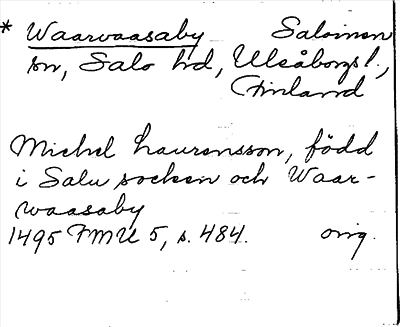 * Waarvaasaby Saloinen
sn, Salo hd, Uleåborgs l.,
Finland
Michel Laurensson, född
i Salu socken och Waar-
waasaby
1495 FMU 5, s. 484. orig.